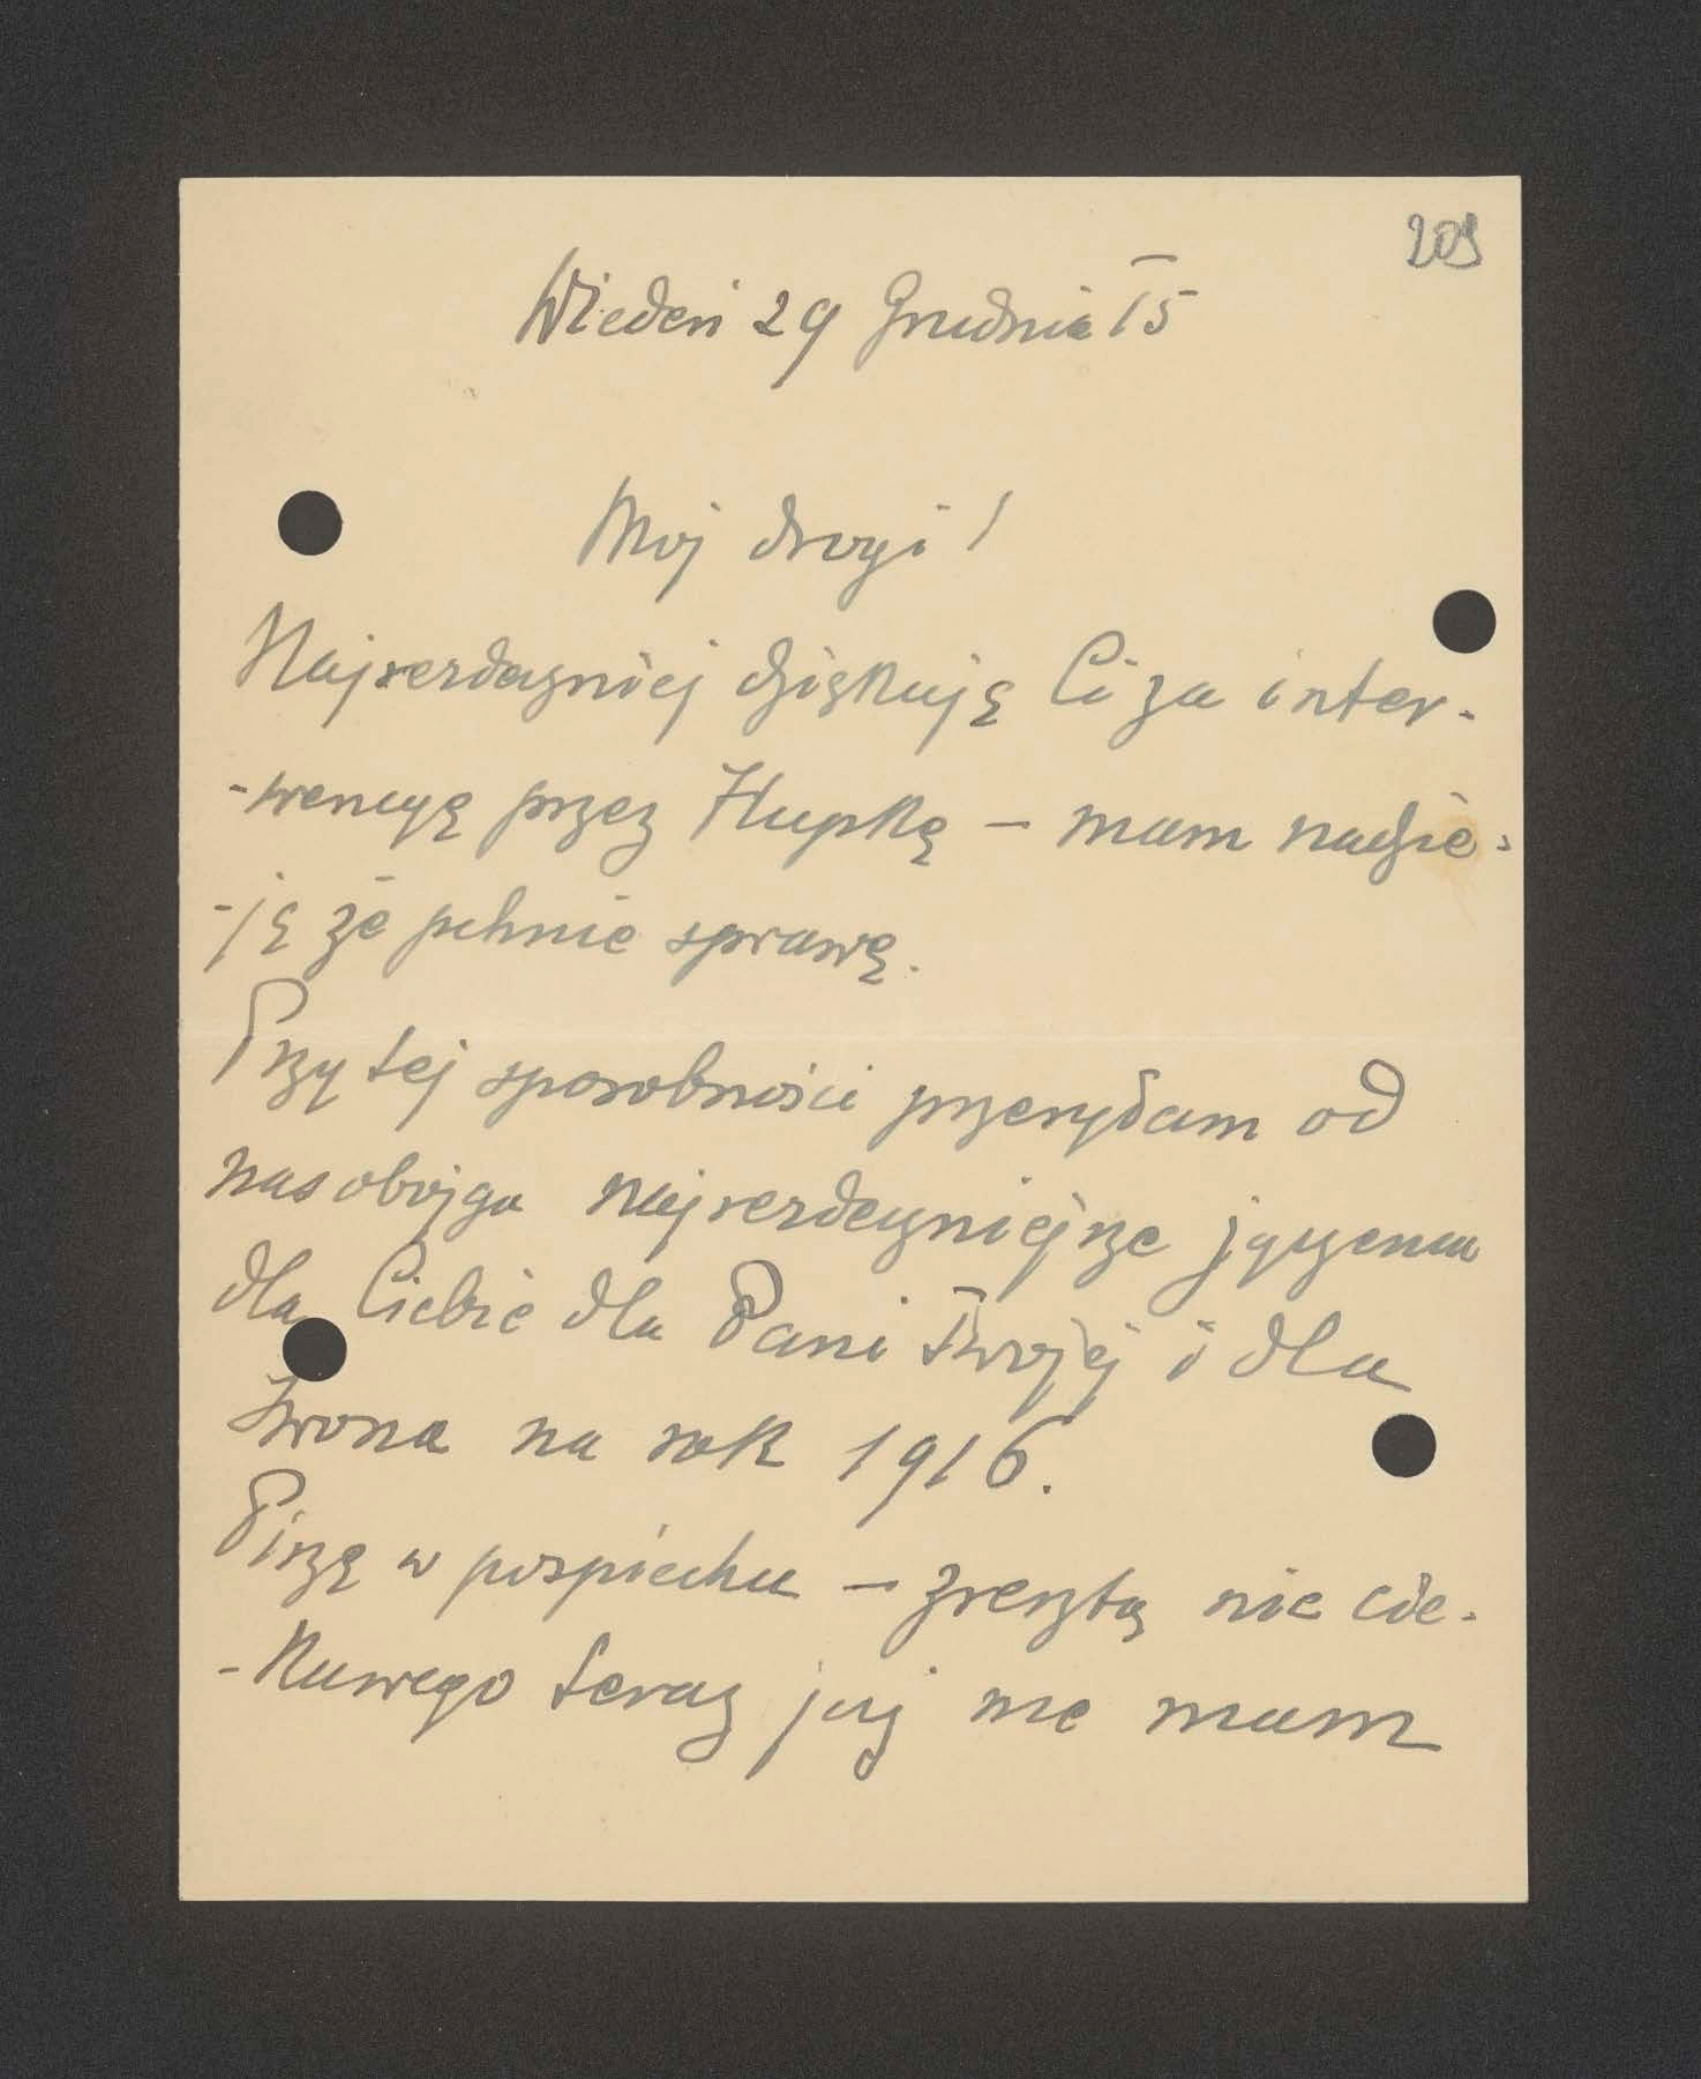 209
Wiedeń 29 Grudnia 15
Mój drogi!
Najserdeczniej dziękuję Ci za inter-
-wencyę przez Hupkę – mam nadzie-
-ję że pchnie sprawę.
Przy tej sposobności przesyłam od
nas obojga najserdeczniejsze życzenia
dla Ciebie dla Pani Twojej i dla
Iwona na rok 1916.
Piszę w pospiechu – zresztą nic cie-
-kawego teraz już nie mam